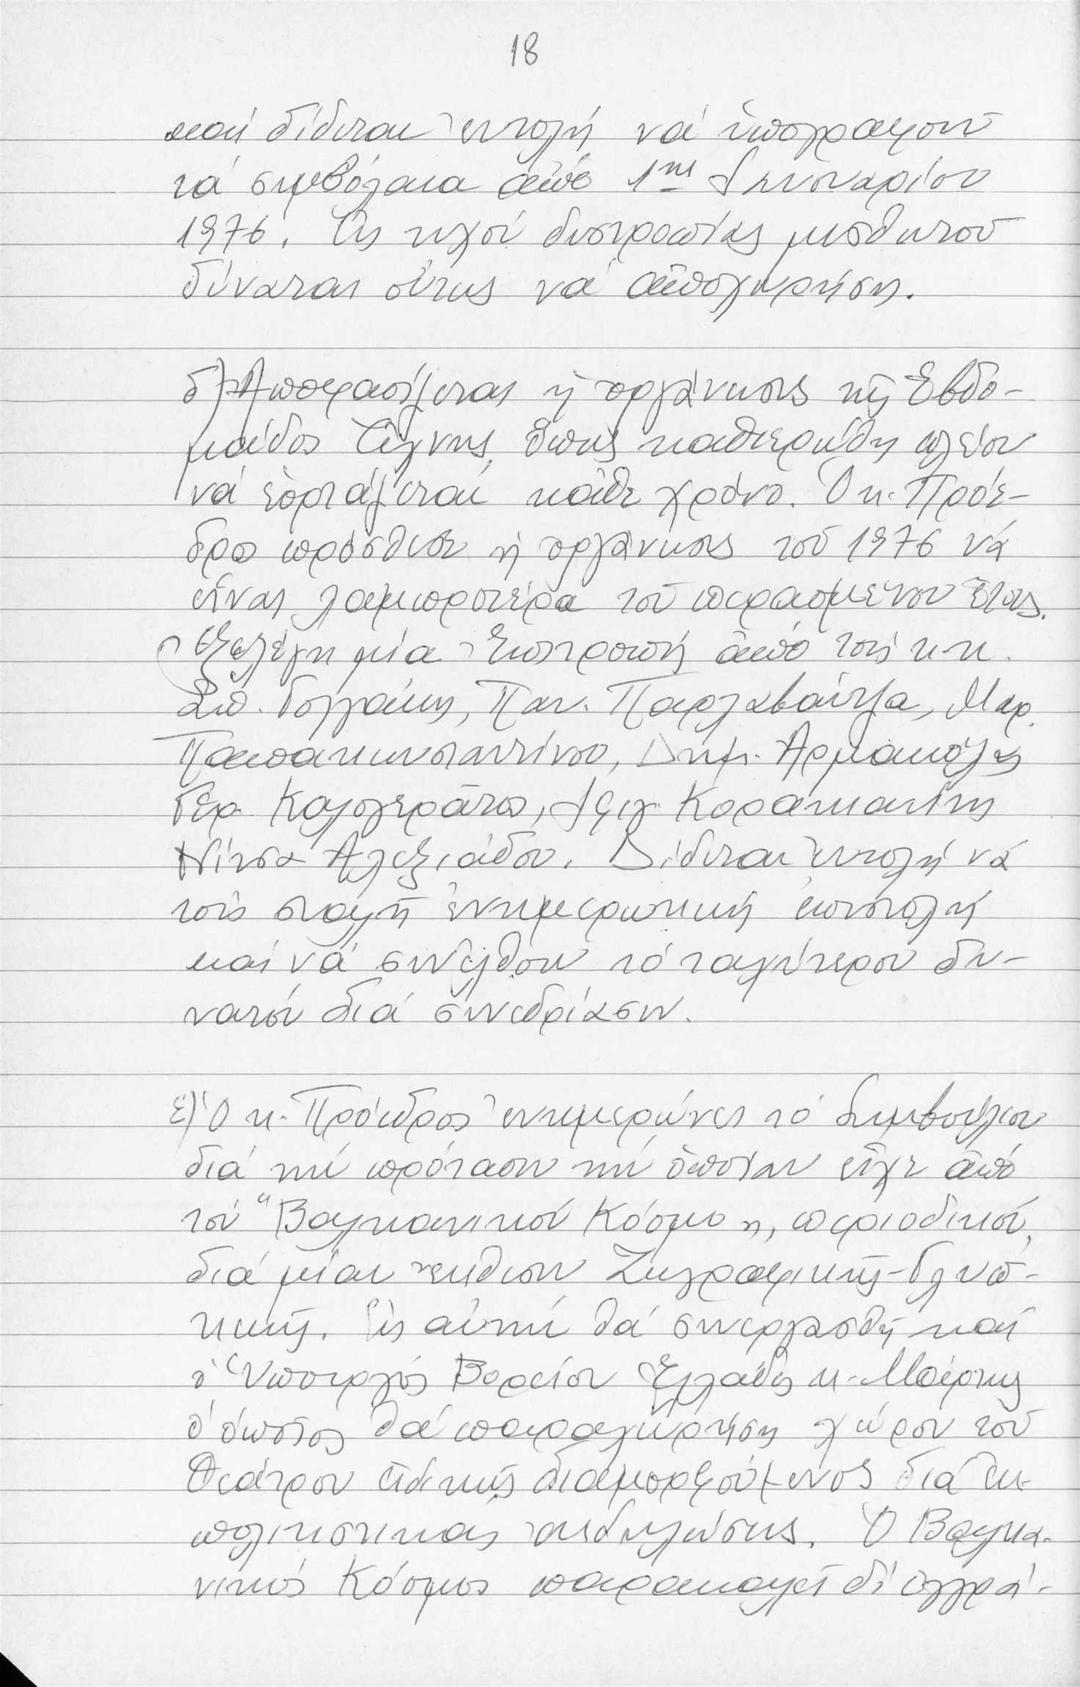 18
καί δίδεται ἐντολή νά ὑπογραφοῦν
τά συμβόλαια ἀπό 1ης Ἰανουαρίου
1976. Ὡς τυχόν δυστροπίας μισθωτοῦ
δύναται οὗτος νά ἀποχωρήση.
δ) Ἀποφασίζεται ἡ ὀργάνωσις τῆς Ἑβδο-
μάδος Τέχνης, ὅπως καθιερώθη πλέον
νά ἑορτάζεται κάθε χρόνο. Ὁ κ. Πρόε-
δρος πρόσθεσε ἡ ὀργάνωσις τοῦ 1976 νά
εἶναι λαμπροτέρα τοῦ περασμένου ἔτους.
Ἐξελέγη μία Ἐπιτροπή ἀπό τούς κ.κ.
Σπ. Γογγάκη, Παν. Παρλαβάντζα, Μαρ.
Παπακωνσταντίνου, Δημ. Ἀρμακόλας
Γερ. Καλογερᾶτος, Ἀχιλ. Καρακατίνης
Νίτσα Ἀλεξιάδου. Δίδεται ἐντολή νά
τούς σταλῆ ἐνημερωτική ἐπιστολή
καί νά συνέλθουν τό ταχύτερον δυ-
νατόν διά συνεδρίασιν.
ε) Ὁ κ. Πρόεδρος ἐνημερώνει τό Συμβούλιον
διά τήν πρότασιν τήν ὁποίαν εἶχε ἀπό
τόν "Βαλκανικόν Κόσμον", περιοδικόν,
διά μίαν ἔκθεσιν Ζωγραφικῆς-Γλυπ-
τικῆς. Εἰς αὐτήν θά συνεργασθῆ καί
ὁ Ὑπουργός Βορείου Ἑλλάδος κ. Μάρτης
ὁ ὁποῖος θά παραχωρήση χῶρον τοῦ
Θεάτρου εἰδικῆς διαμορφούμενος διά ἐκ-
πολιτιστικάς ἐκδηλώσεις. Ὁ Βαλκα-
νικός Κόσμος παρακαλεῖ δι' ἐγγρά-